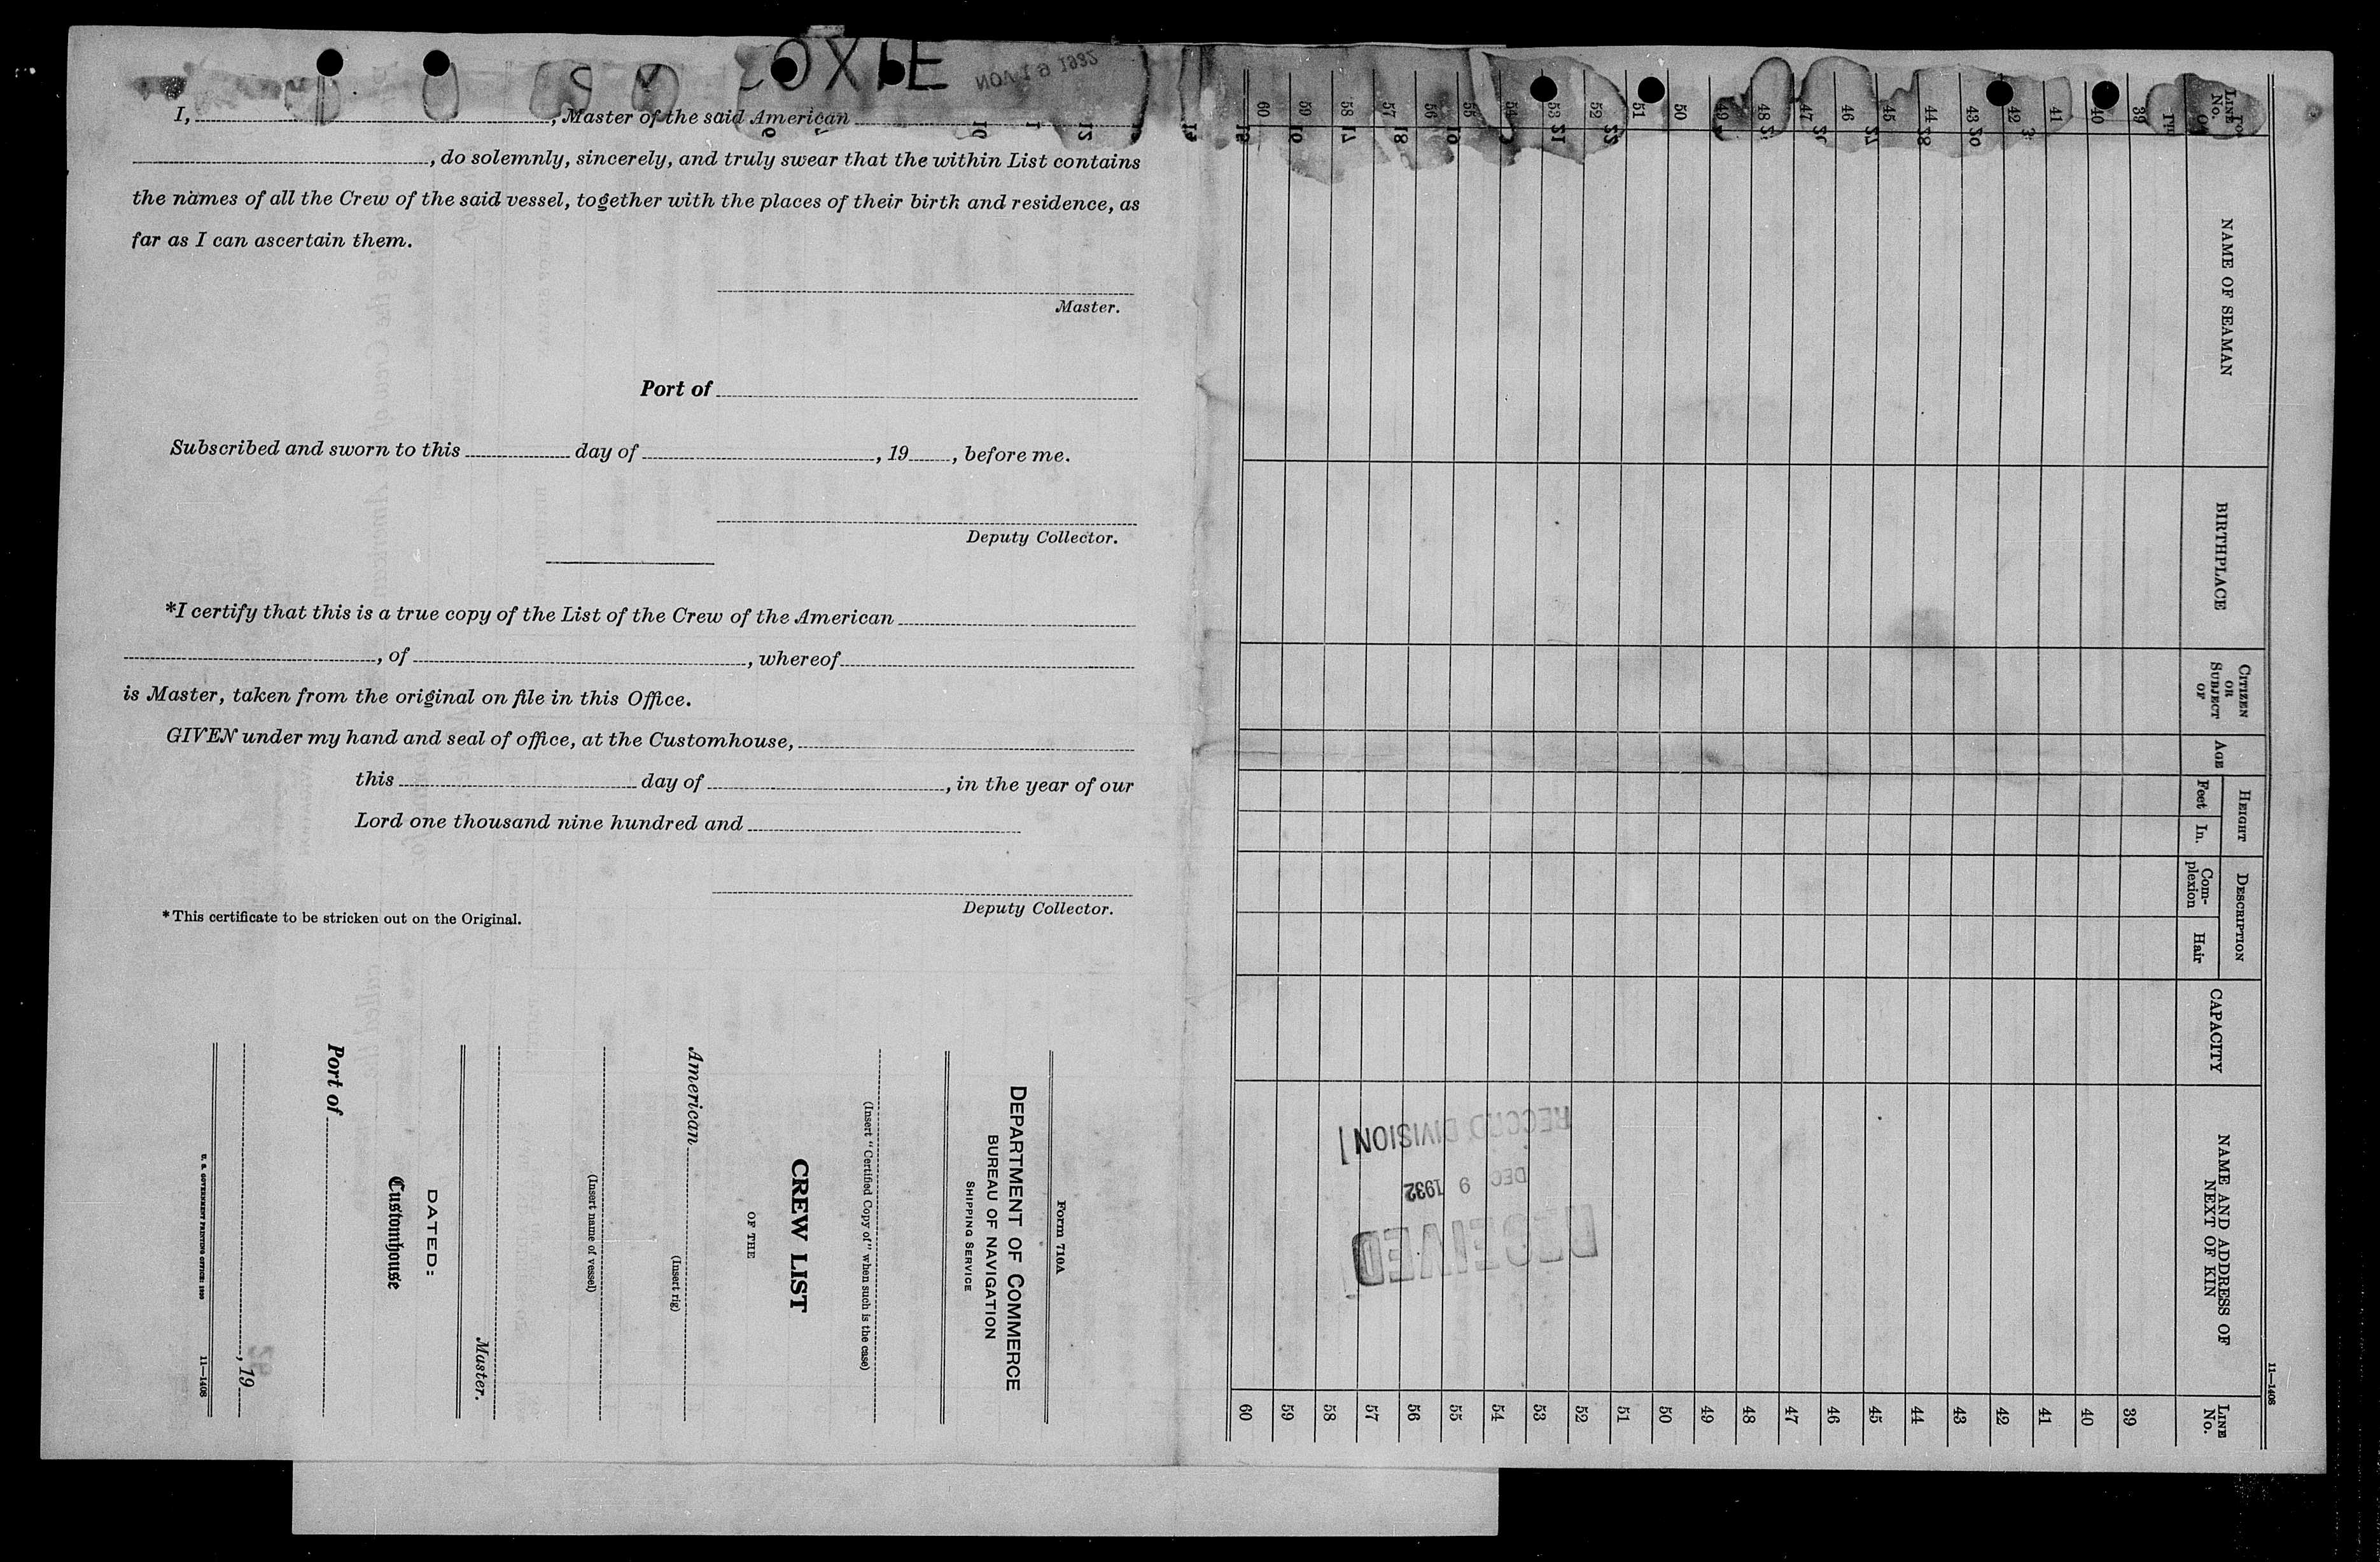 OXIE
NOV 19 1932
I, , Master of the said American
, do solemnly, sincerely, and truly swear that the within List contains
the names of all the Crew of the said vessel, together with the places of their birth and residence, as
far as I can ascertain them.
Master.
Port of
Subscribed and sworn to this day of , 19 , before me.
Deputy Collector.
*I certify that this is a true copy of the List of the Crew of the American
, of , whereof
is Master, taken from the original on file in this Office.
GIVEN under my hand and seal of office, at the Customhouse,
this day of , in the year of our
Lord one thousand nine hundred and
Deputy Collector.
*This certificate to be stricken out on the Original.
Form 710A
DEPARTMENT OF COMMERCE
BUREAU OF NAVIGATION
SHIPPING SERVICE
(Insert "Certified Copy of" when such is the case)
CREW LIST
OF THE
American
(Insert rig)
(Insert name of vessel)
Master.
DATED:
Customhouse
Port of
, 19
U. S. GOVERNMENT PRINTING OFFICE: 1930
11—1408
11—1408
LINE No.
NAME OF SEAMAN
BIRTHPLACE
CITIZEN OR SUBJECT OF
AGE
HEIGHT
Feet
In.
DESCRIPTION
Com-
plexion
Hair
CAPACITY
NAME AND ADDRESS OF
NEXT OF KIN
LINE No.
39 39
40 40
41 41
42 42
43 43
44 44
45 45
46 46
47 47
48 48
49 49
50 50
51 51
52 52
53 53
54 54
55 55
56 56
57 57
58 58
59 59
60 60
RECEIVED
DEC 9 1932
RECORD DIVISION